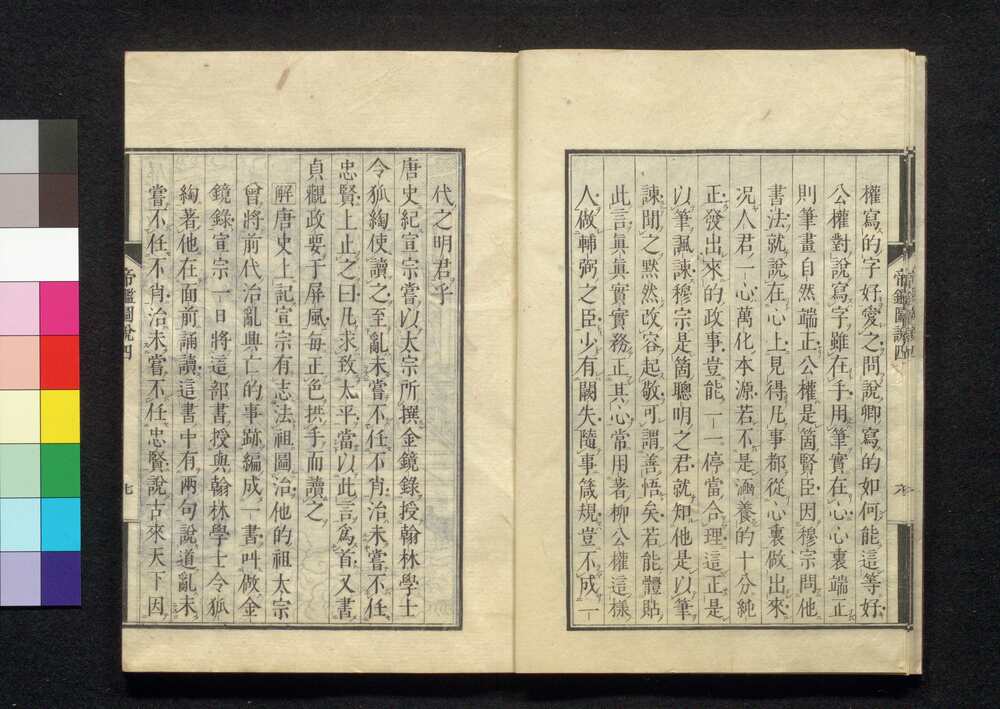 權寫的字好愛之問說卿寫的如何能這等好
公權對說寫字雖在手用筆實在心心裏端正
則筆畫自然端正公權是箇賢臣因穆宗問他
書法就說在心上見得凡事都從心裏做出來
况人君一心萬化本源若不是涵養的十分純
正發出來的政事豈能一一停當合理這正是
以筆諷諫穆宗是箇聰明之君就知他是以筆
諫聞之默然改容起敬可謂善悟矣若能體貼
此言眞眞實實務正其心常用著柳公權這樣
人做輔弼之臣少有闕失隨事箴規豈不成一
帝鑑圖說四
六
代之明君乎
唐史紀宣宗嘗以太宗所撰金鏡錄授翰林學士
令狐綯使讀之至亂未嘗不任不肖治未嘗不任
忠賢上止之曰凡求致太平當以此言爲首又書
貞觀政要于屏風每正色拱手而讀之
解唐史上記宣宗有志法祖圖治他的祖太宗
曾將前代治亂興亡的事跡編成一書叫做金
鏡錄宣宗一日將這部書授與翰林學士令狐
綯著他在面前誦讀這書中有兩句說道亂未
嘗不任不肖治未嘗不任忠賢說古來天下因
帝鑑圖說四
七